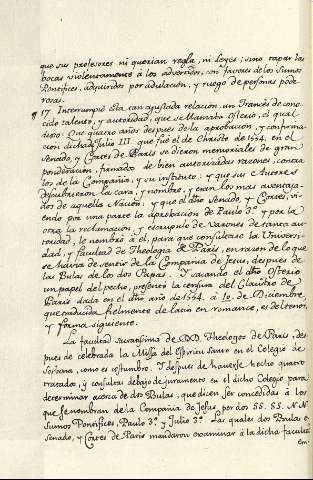 que sus profesores ni querian regla, ni Leyes; sino tapar las
bocas violentamente à los advertidos, con favores de los Sumos
Pontifices, adquiridos por adulacion, y ruego de personas pode
rosas.
17. Interrumpiò esta tan ajustada relacion, un Francès de cono
cido talento, y autoridad, que se llamaba Osterio, el qual
dixo: Que quatro años despues de la aprobacion, y confirma
cion dicha de Julio III. que fuè el de Christo de 1554. en el
Senado, y Cortes de Paris se dieron memoriales de gran
ponderacion, firmados de bien autorizadas razones, contra
los de la Compañia, y su instituto: y que sus Autores
descubrieron la cara, y nombre, y eran los mas aventaja
dos de aquella Nacion; y que el dho Senado y Cortes, vi
endo por una parte la aprobacion de Paulo 3º y por la
otra la reclamacion, y escrupulo de Varones de tanta au
toridad, le nombrò à èl, para que consultase la Universi
dad, y facultad de Theologia de Paris, en razon de lo que
se havia de sentir de la Compañia de Jesus, despues de
las Bulas de los dos Papas. Y sacando el dho Osterio
un papel del pecho, presentò la censura del Claustro de
Paris dada en el dho año de 1554. à 1º de Diciembre,
que traducida fielmente de latin en romance, es del tenor,
y forma siguiente.
La facultad Sacratisima de DD. Theologos de Paris, des
pues de celebrada la Missa del Espiritu Santo en el Colegio de
Sorbona, como es costumbre. Y despues de haverse hecho quatro
tratados, y consultas debajo de juramento en el dicho Colegio para
determinar acerca de dos Bulas, que dicen ser concedidas à los
que se nombran de la Compañia de Jesus, por dos SS. SS. N. N.
Sumos Pontifices, Paulo 3º y Julio 3º. Las quales dos Bulas el
Senado, y Cortes de Paris mandaron examinar à la dicha facultad
en